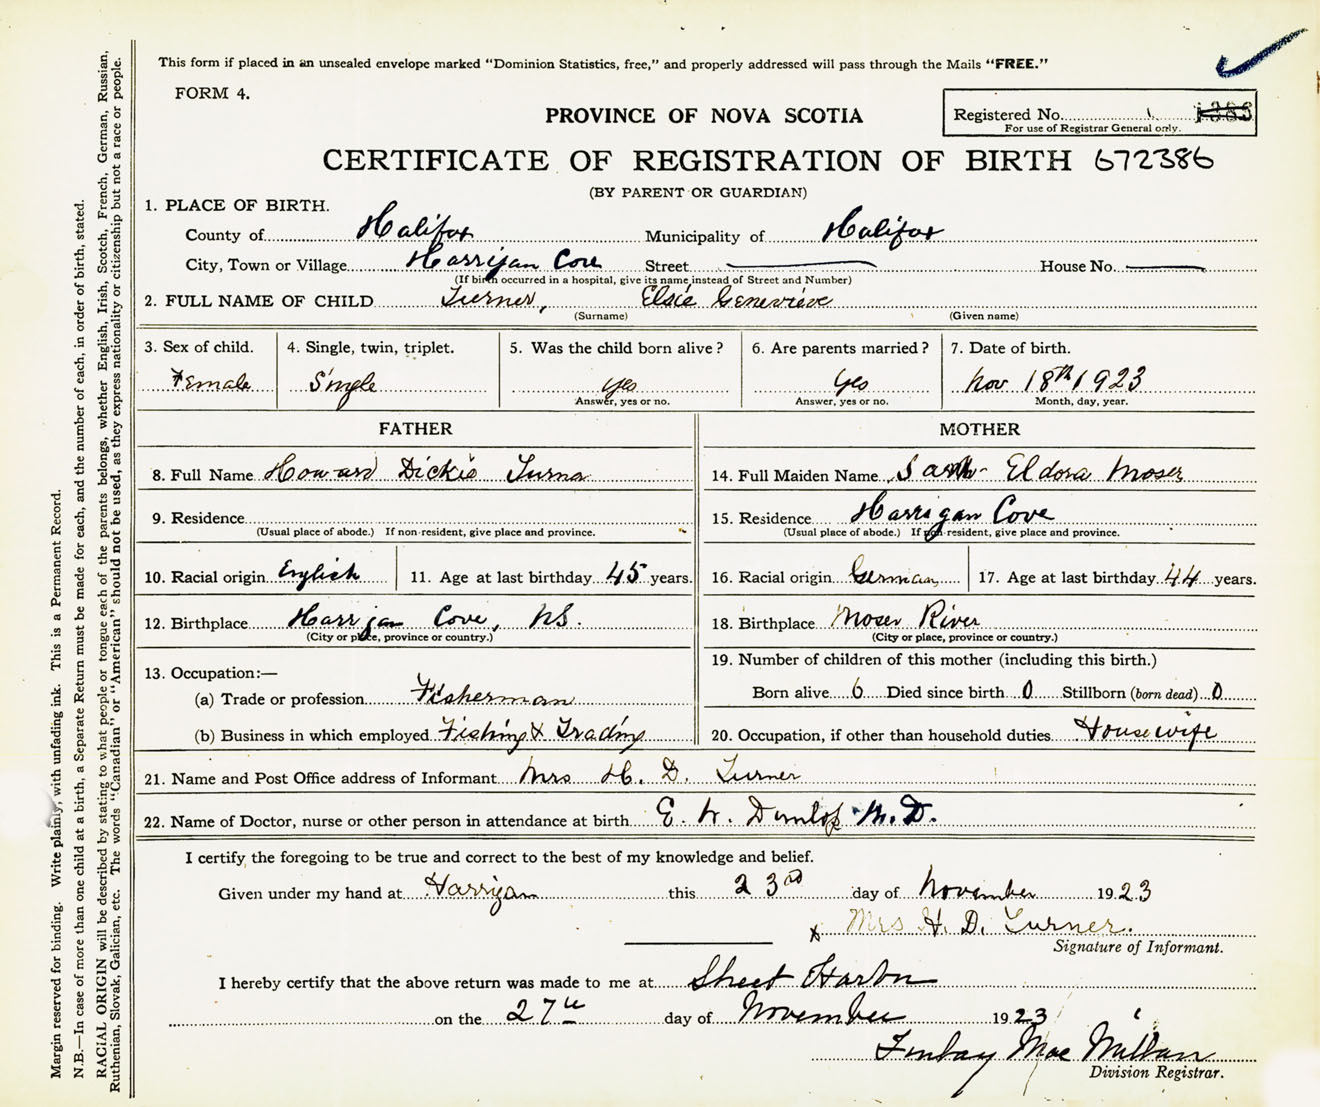 This form if placed in an unsealed envelope marked "Dominion Statistics, free," and properly addressed will pass through the Mails "FREE."
FORM 4.
PROVINCE OF NOVA SCOTIA
Registered No.
For use of Registrar General only.
CERTIFICATE OF REGISTRATION OF BIRTH 672386
(BY PARENT OR GUARDIAN)
1. PLACE OF BIRTH.
County of Halifax Municipality of Halifax
City, Town or Village Harrigan Cove Street — House No. —
(If birth occurred in a hospital, give its name instead of Street and Number)
2. FULL NAME OF CHILD Turner, Elsie Genevieve
(Surname) (Given name)
3. Sex of child. 4. Single, twin, triplet. 5. Was the child born alive? 6. Are parents married? 7. Date of birth.
Female Single yes yes Nov 18th 1923
Answer, yes or no. Answer, yes or no. Month, day, year.
FATHER MOTHER
8. Full Name Howard Dickie Turner 14. Full Maiden Name Sarah Eldora Moser
9. Residence 15. Residence Harrigan Cove
(Usual place of abode.) If non-resident, give place and province. (Usual place of abode.) If non-resident, give place and province.
10. Racial origin English 11. Age at last birthday 45 years. 16. Racial origin German 17. Age at last birthday 44 years.
12. Birthplace Harrigan Cove, N.S. 18. Birthplace Moser River
(City or place, province or country.) (City or place, province or country.)
13. Occupation:— 19. Number of children of this mother (including this birth.)
(a) Trade or profession Fisherman Born alive 6 Died since birth 0 Stillborn (born dead) 0
(b) Business in which employed Fishing & Trading 20. Occupation, if other than household duties Housewife
21. Name and Post Office address of Informant Mrs H. D. Turner
22. Name of Doctor, nurse or other person in attendance at birth E. W. Dunlop M.D.
I certify the foregoing to be true and correct to the best of my knowledge and belief.
Given under my hand at Harrigan this 23rd day of November 1923
x Mrs H. D. Turner.
Signature of Informant.
I hereby certify that the above return was made to me at Sheet Harbor
on the 27th day of November 1923
Finlay MacMillan
Division Registrar.
Margin reserved for binding. Write plainly, with unfading ink. This is a Permanent Record.
N.B.—In case of more than one child at a birth, a Separate Return must be made for each, and the number of each, in order of birth, stated.
RACIAL ORIGIN will be described by stating to what people or tongue each of the parents belongs, whether English, Irish, Scotch, French, German, Russian,
Ruthenian, Slovak, Galician, etc. The words "Canadian" or "American" should not be used, as they express nationality or citizenship but not a race or people.